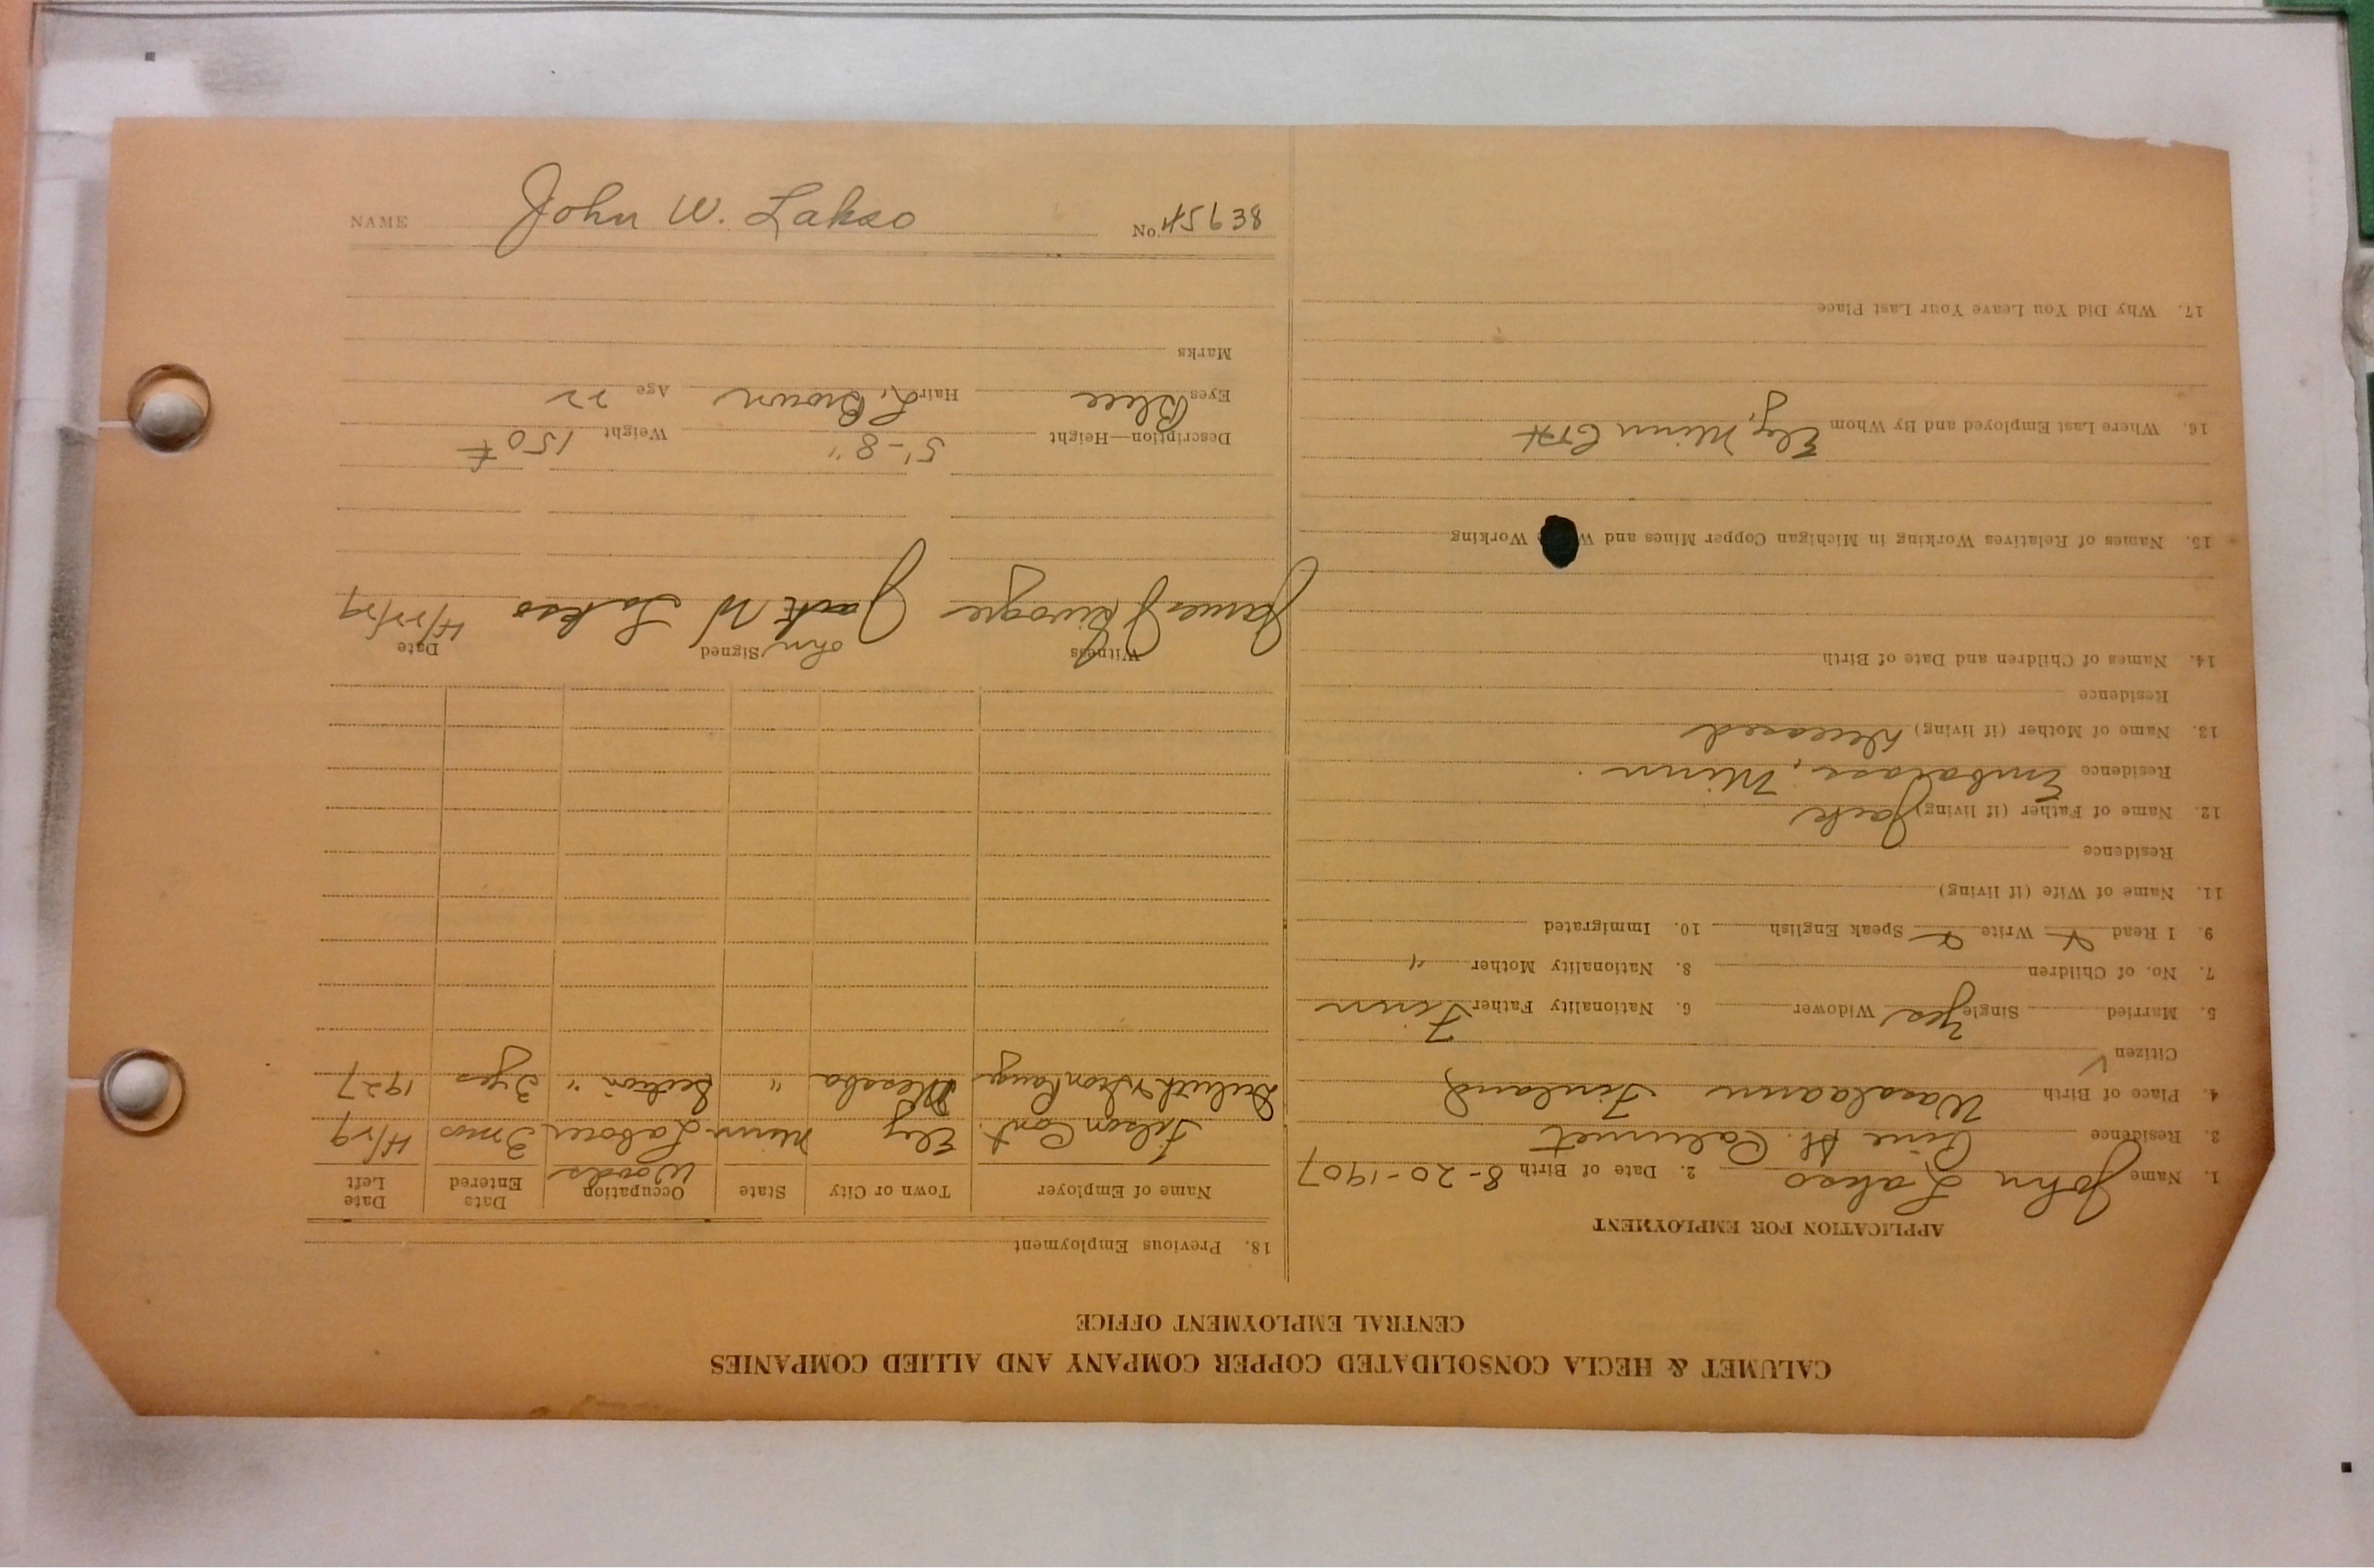 CALUMET & HECLA CONSOLIDATED COPPER COMPANY AND ALLIED COMPANIES
CENTRAL EMPLOYMENT OFFICE
APPLICATION FOR EMPLOYMENT
1. Name John Lakso 2. Date of Birth 8-20-1907
3. Residence Pine St. Calumet
4. Place of Birth Waaslaann Finland
Citizen
5. Married Single Yes Widower 6. Nationality Father Finn
7. No. of Children 8. Nationality Mother "
9. I Read x Write x Speak English 10. Immigrated
11. Name of Wife (if living)
Residence
12. Name of Father (if living) Jack
Residence Embarass, Minn.
13. Name of Mother (if living) Deceased
Residence
14. Names of Children and Date of Birth
15. Names of Relatives Working in Michigan Copper Mines and W Working
16. Where Last Employed and By Whom Ely, Minn
17. Why Did You Leave Your Last Place
18. Previous Employment
Name of Employer Town or City State Occupation Date Entered Date Left
Woods
Cont. Ely Minn Laborer 3 mos 4/29
Duluth & Iron Range Mesaba " Section " 3 yrs 1927
Witness Signed Date
ohn
James Jack W Lakso 4/22/29
Description—Height 5'-8" Weight 150 #
Eyes Blue Hair L. Brown Age 22
Marks
NAME John W. Lakso No.